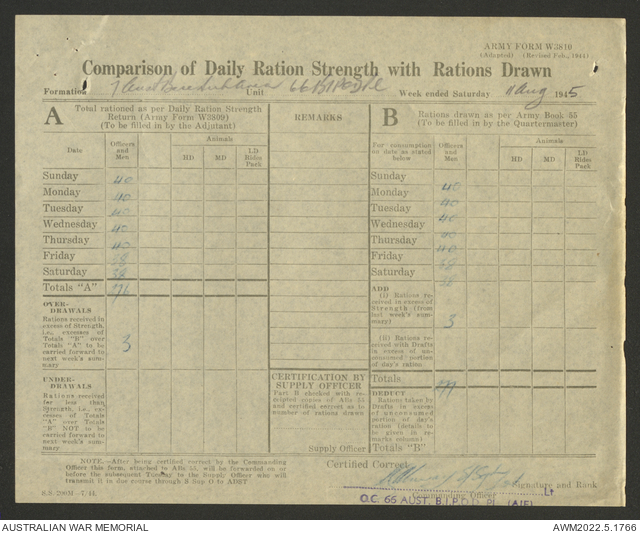 ARMY FORM W3810
(Adapted) (Revised Feb., 1944)
Comparison of Daily Ration Strength with Rations Drawn
Formation Unit 66 Week ended Saturday 11 Aug 1945
A Total rationed as per Daily Ration Strength
Return (Army Form W3809)
(To be filled in by the Adjutant)
Date Officers and Men Animals
HD MD LD Rides Pack
Sunday 40
Monday 40
Tuesday 40
Wednesday 40
Thursday 40
Friday 38
Saturday 38
Totals "A"
OVER-
DRAWALS
Rations received in
excess of Strength,
i.e., excesses of
Totals "B" over
Totals "A" to be
carried forward to
next week's sum-
mary
3
UNDER-
DRAWALS
Rations received
far less than
Strength, i.e., ex-
cesses of Totals
"A" over Totals
"B" NOT to be
carried forward to
next week's sum-
mary
REMARKS
CERTIFICATION BY
SUPPLY OFFICER
Part B checked with re-
ceipted copies of ABs 55
and certified correct as to
number of rations drawn
Supply Officer
B Rations drawn as per Army Book 55
(To be filled in by the Quartermaster)
For consumption
on date as stated
below
Officers and Men Animals
HD MD LD Rides Pack
Sunday
Monday 40
Tuesday 40
Wednesday 40
Thursday 40
Friday 40
Saturday 38
38
ADD
(i) Rations re-
ceived in excess of
Strength (from
last week's sum-
mary)
3
(ii) Rations re-
ceived with Drafts
in excess of un-
consumed portion
of day's ration
Totals
DEDUCT
Rations taken by
Drafts in excess
of unconsumed
portion of day's
ration (details to
be given in re-
marks column)
Totals "B"
NOTE.—After being certified correct by the Commanding
Officer this form, attached to ABs 55, will be forwarded on or
before the subsequent Tuesday to the Supply Officer who will
transmit it in due course through S Sup O to ADST
S.S. 200M—7/44.
Certified Correct
Lt
Signature and Rank
Commanding Officer
O.C. 66 AUST. B.I.P.O.D. PL. (AIF)
AUSTRALIAN WAR MEMORIAL
AWM2022.5.1766